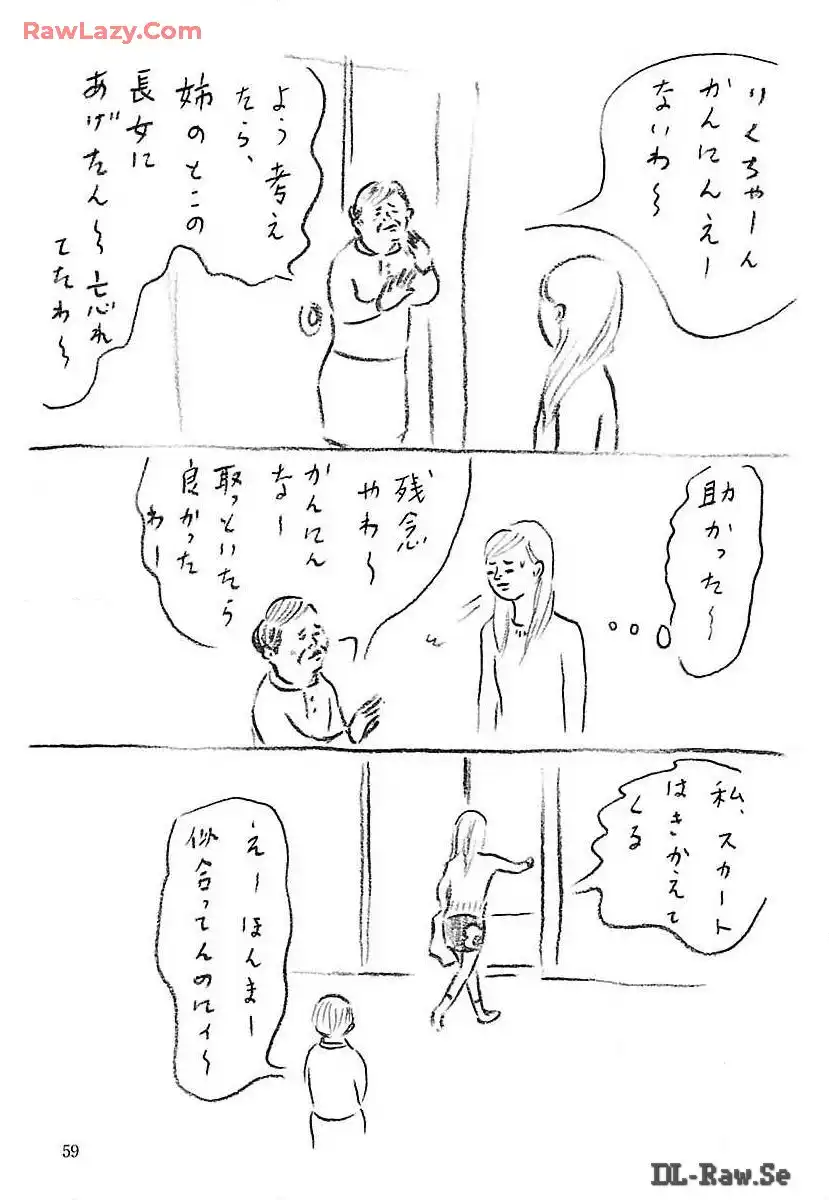 RawLazy.Com
りくちゃーん
かんにんえー
ないわ〜
よう考え
たら、
姉のとこの
長女に
あげたん〜忘れ
てたわ〜
助かった〜
残念
やわ〜
かんにん
なー
取っといたら
良かった
わー
私、スカート
はきかえて
くる
えーほんまー
似合ってんのにィ〜
59
DL-Raw.Se